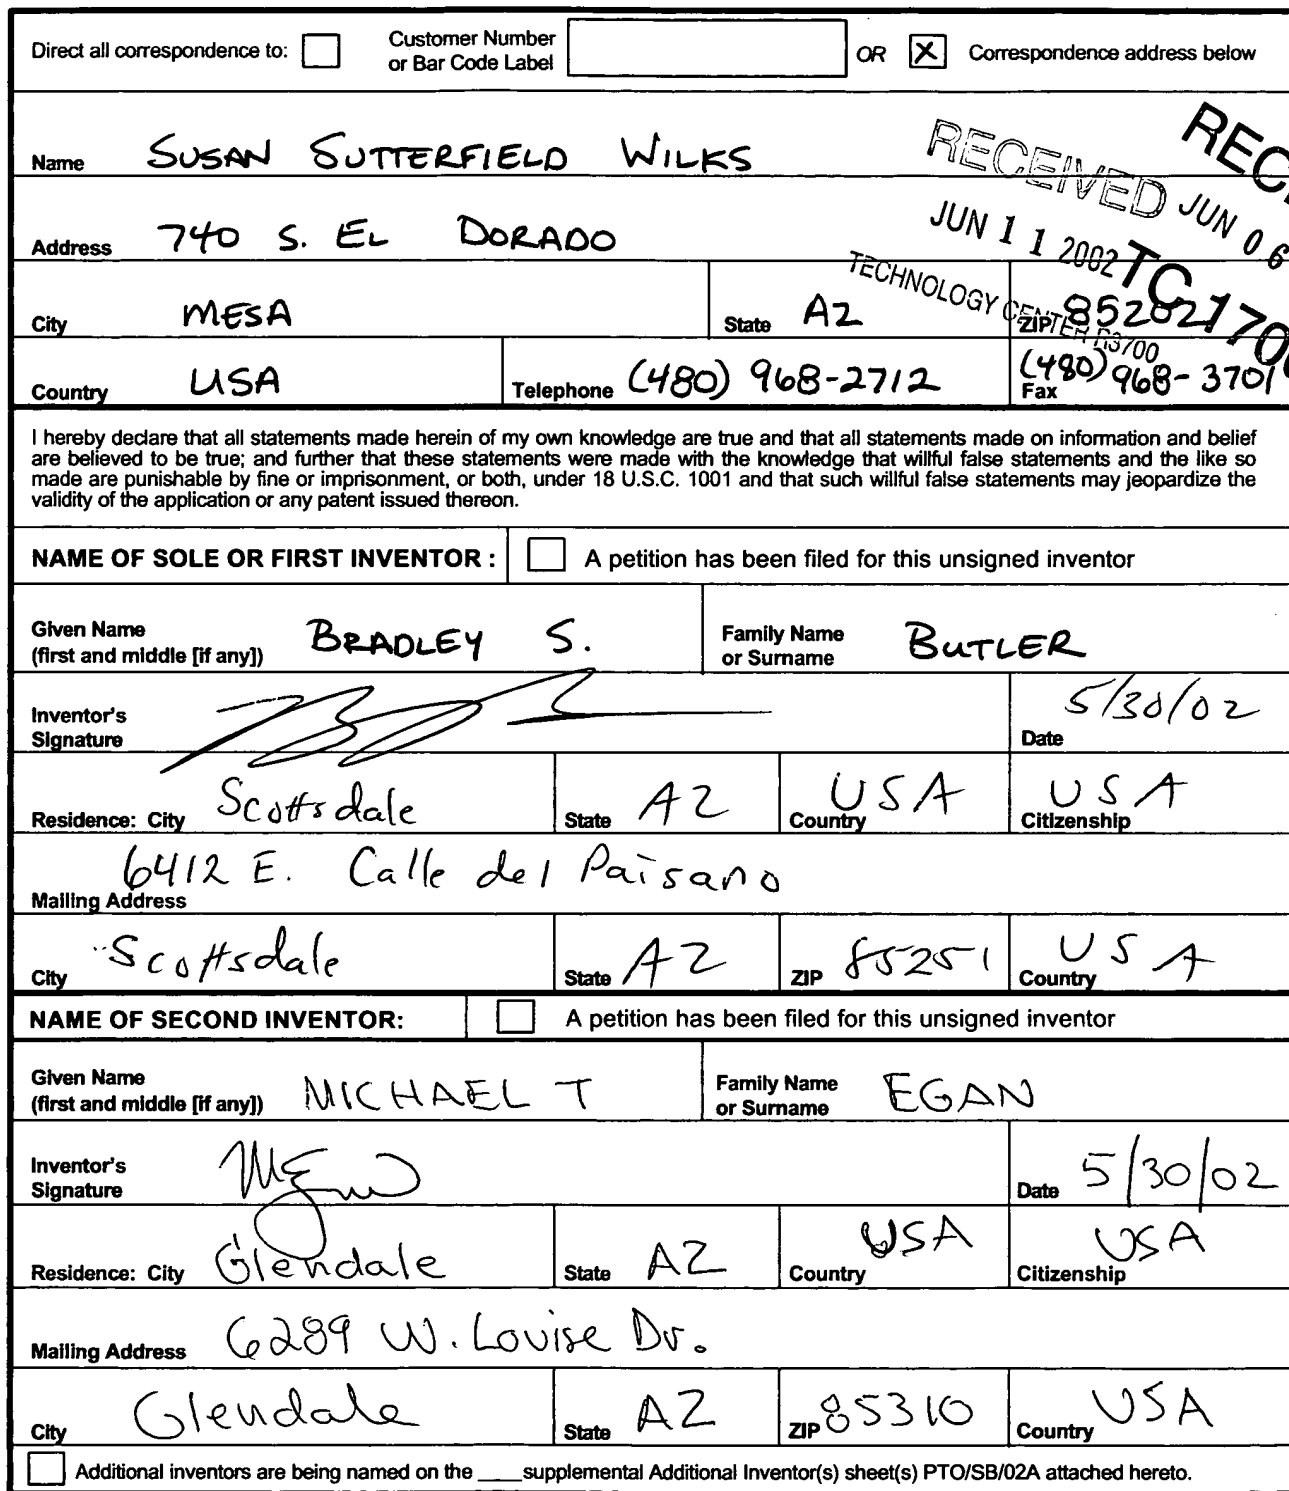 Direct all correspondence to: Customer Number or Bar Code Label OR X Correspondence address below
Name SUSAN SUTTERFIELD WILKS
RECEIVED
JUN 11 2002
TECHNOLOGY CENTER R3700
JUN 06
TC 1700
Address 740 S. EL DORADO
City MESA State AZ ZIP 85282
Country USA Telephone (480) 968-2712 Fax (480) 968-3701
I hereby declare that all statements made herein of my own knowledge are true and that all statements made on information and belief
are believed to be true; and further that these statements were made with the knowledge that willful false statements and the like so
made are punishable by fine or imprisonment, or both, under 18 U.S.C. 1001 and that such willful false statements may jeopardize the
validity of the application or any patent issued thereon.
NAME OF SOLE OR FIRST INVENTOR : A petition has been filed for this unsigned inventor
Given Name (first and middle [if any]) BRADLEY S. Family Name or Surname BUTLER
Inventor's Signature Date 5/30/02
Residence: City Scottsdale State AZ Country USA Citizenship USA
Mailing Address 6412 E. Calle del Paisano
City Scottsdale State AZ ZIP 85251 Country USA
NAME OF SECOND INVENTOR: A petition has been filed for this unsigned inventor
Given Name (first and middle [if any]) MICHAEL T Family Name or Surname EGAN
Inventor's Signature Date 5/30/02
Residence: City Glendale State AZ Country USA Citizenship USA
Mailing Address 6289 W. Louise Dr.
City Glendale State AZ ZIP 85310 Country USA
Additional inventors are being named on the ___supplemental Additional Inventor(s) sheet(s) PTO/SB/02A attached hereto.